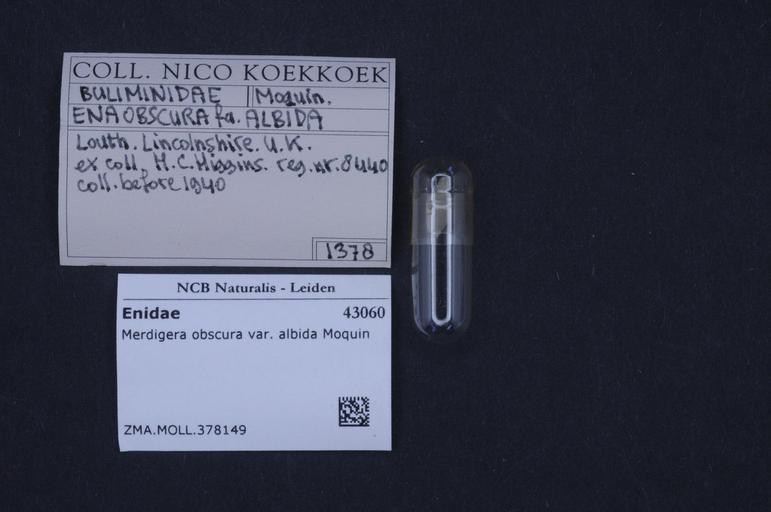 COLL. NICO KOEKKOEK
BULIMINIDAE Moquin.
ENA OBSCURA fa. ALBIDA
Louth. Lincolnshire. U.K.
ex coll. H.C. Higgins. reg. nr. 8440
coll. before 1940
1378
NCB Naturalis - Leiden
Enidae 43060
Merdigera obscura var. albida Moquin
ZMA.MOLL.378149